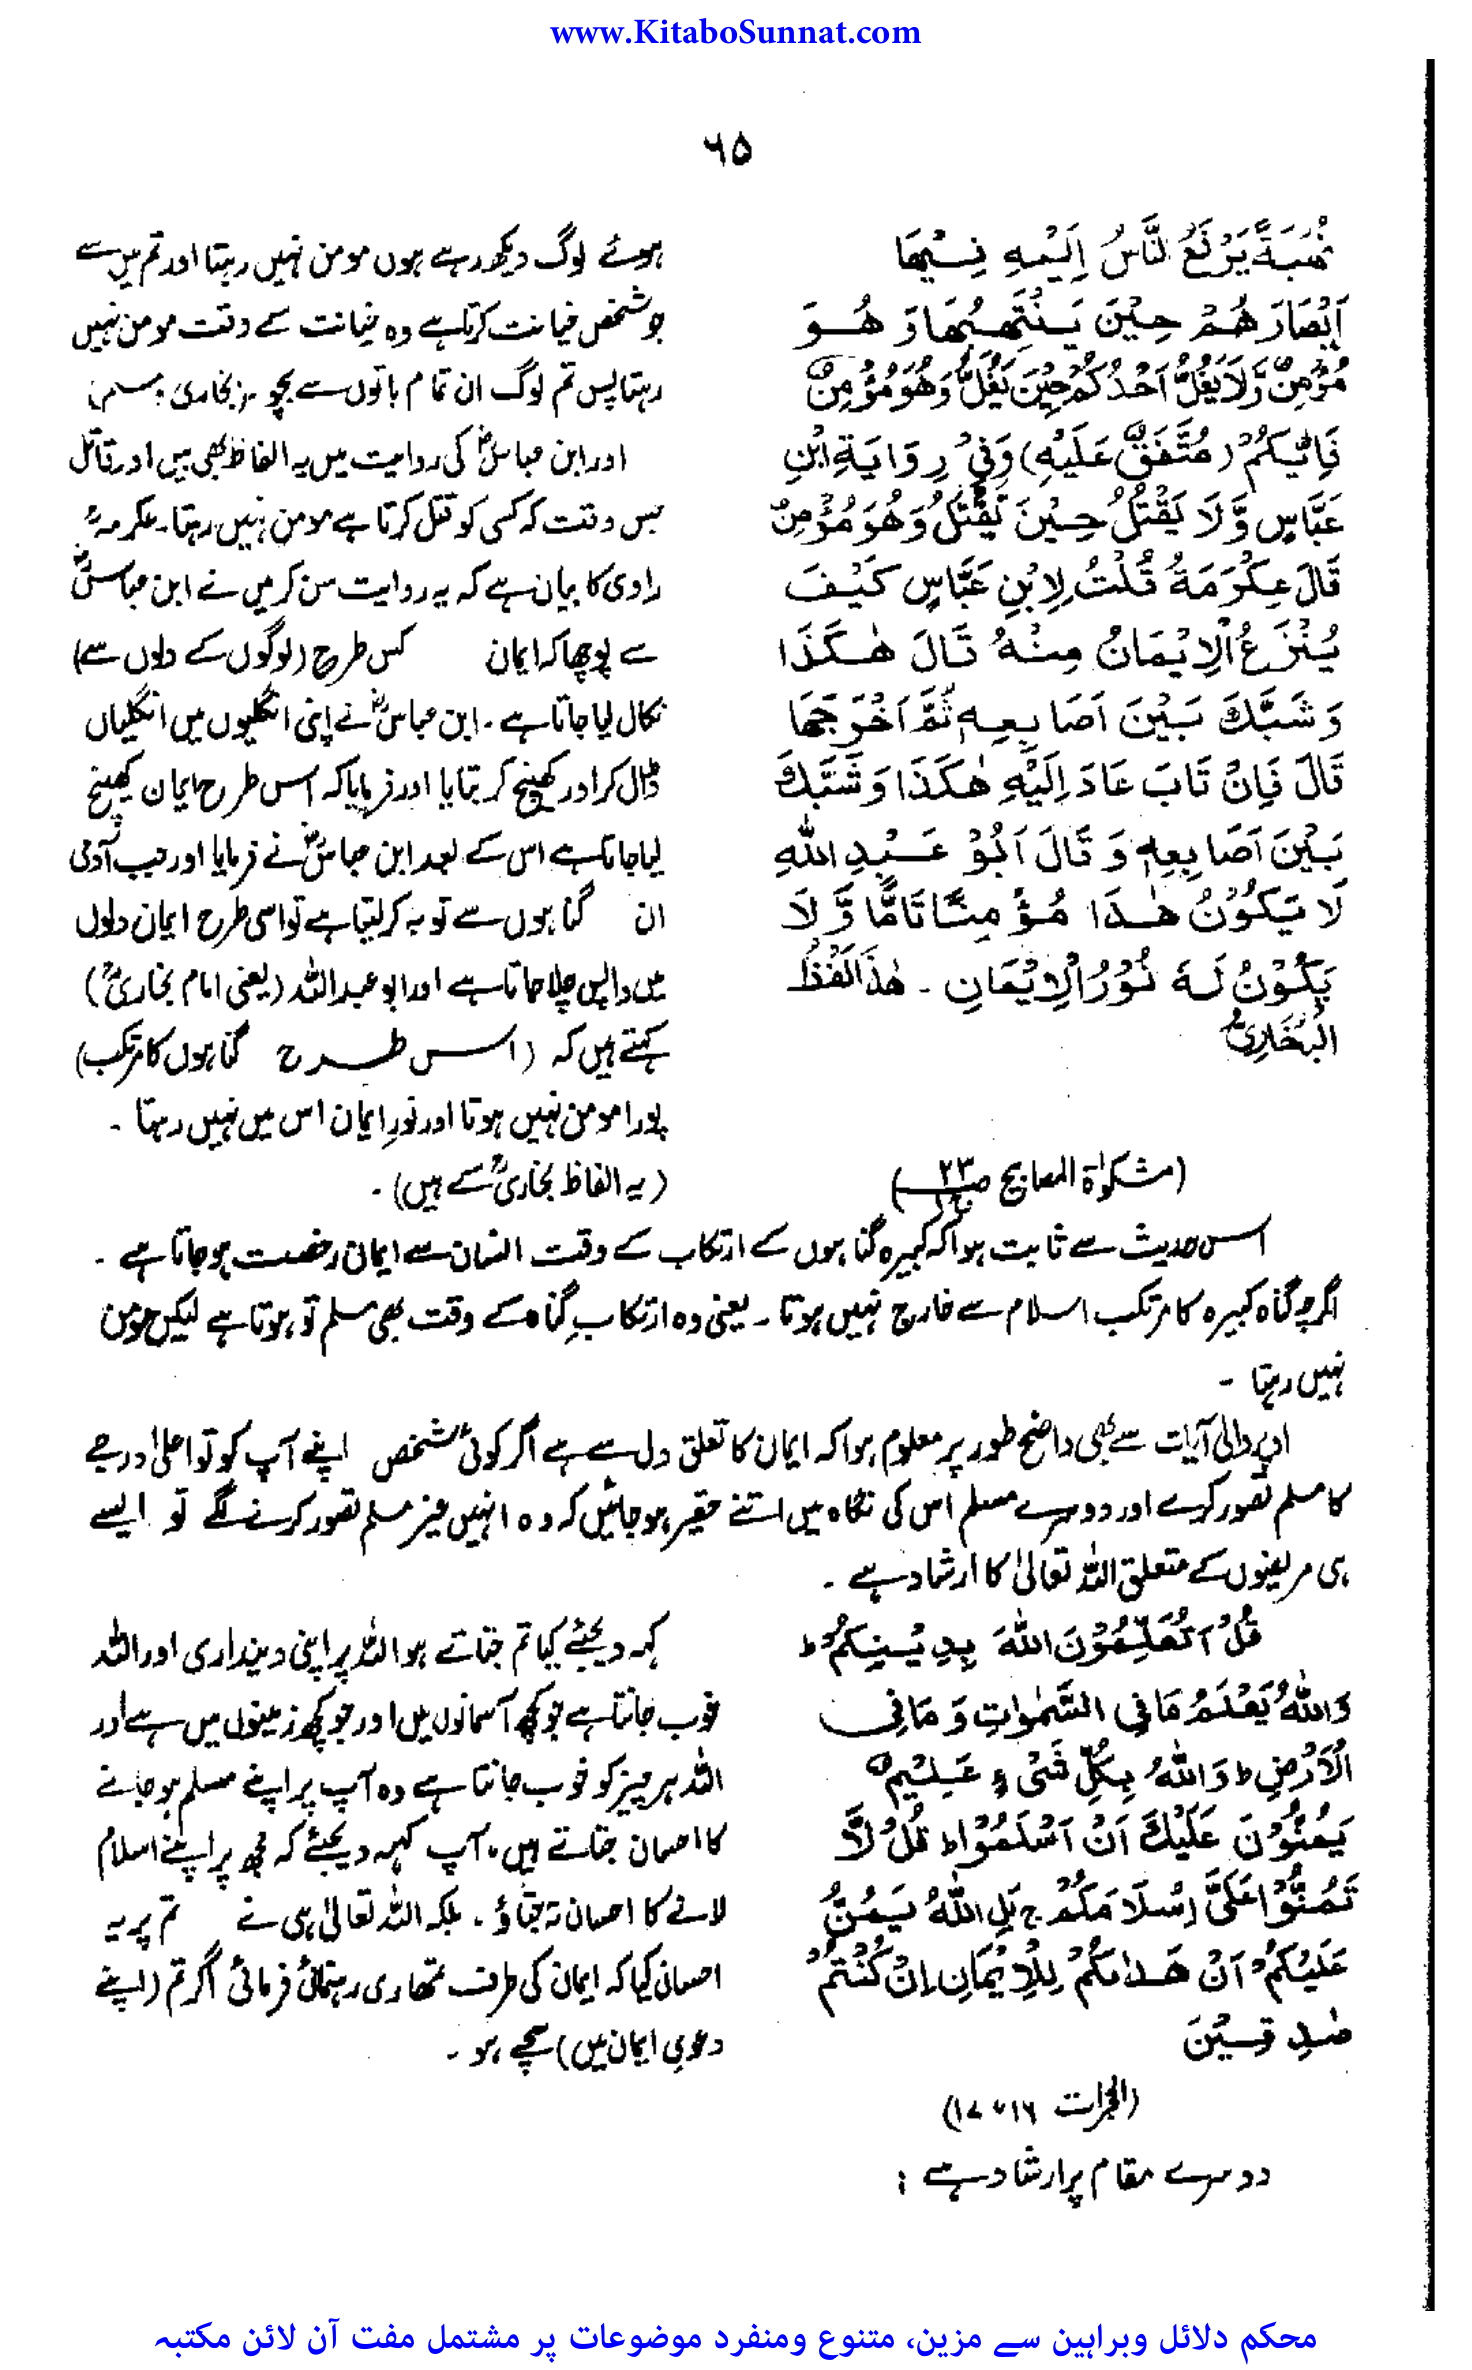 www.KitaboSunnat.com
۶۵
نُهْبَةً يَرْفَعُ النَّاسُ اِلَيْهِ فِيْهَا
اَبْصَارَهُمْ حِيْنَ يَنْتَهِبُهَا وَ هُوَ
مُؤْمِنٌ وَّلَا يَغُلُّ اَحَدُكُمْ حِيْنَ يَغُلُّ وَهُوَ مُؤْمِنٌ
فَاِيَّاكُمْ (مُتَّفَقٌ عَلَيْهِ) وَفِيْ رِوَايَةِ ابْنِ
عَبَّاسٍ وَّلَا يَقْتُلُ حِيْنَ يَقْتُلُ وَهُوَ مُؤْمِنٌ
قَالَ عِكْرَمَةُ قُلْتُ لِابْنِ عَبَّاسٍ كَيْفَ
يُنْزَعُ الْاِيْمَانُ مِنْهُ قَالَ هٰكَذَا
وَشَبَّكَ بَيْنَ اَصَابِعِهٖ ثُمَّ اَخْرَجَهَا
قَالَ فَاِنْ تَابَ عَادَ اِلَيْهِ هٰكَذَا وَشَبَّكَ
بَيْنَ اَصَابِعِهٖ وَ قَالَ اَبُوْ عَبْدِ اللهِ
لَا يَكُوْنُ هٰذَا مُؤْمِنًا تَامًّا وَّ لَا
يَكُوْنُ لَهٗ نُوْرُ الْاِيْمَانِ ۔ هٰذَا لَفْظُ
الْبُخَارِيِّ
(مشکوٰۃ المصابیح ص ۲۳ ج ۱)
ہوئے لوگ دیکھ رہے ہوں مومن نہیں رہتا اور تم میں سے
جو شخص خیانت کرتا ہے وہ خیانت کے وقت مومن نہیں
رہتا پس تم لوگ ان تمام باتوں سے بچو ۔ (بخاری و مسلم)
اور ابن عباسؓ کی روایت میں یہ الفاظ بھی ہیں اور قاتل
جس وقت کہ کسی کو قتل کرتا ہے مومن نہیں رہتا ۔ عکرمہؒ
راوی کا بیان ہے کہ یہ روایت سن کر میں نے ابن عباسؓ
سے پوچھا کہ ایمان کس طرح (لوگوں کے دلوں سے)
نکال لیا جاتا ہے ۔ ابن عباسؓ نے اپنی انگلیوں میں انگلیاں
ڈال کر اور کھینچ کر بتایا اور فرمایا کہ اس طرح ایمان کھینچ
لیا جاتا ہے اس کے بعد ابن عباسؓ نے فرمایا اور جب آدمی
ان گناہوں سے توبہ کر لیتا ہے تو اسی طرح ایمان دلوں
میں واپس چلا جاتا ہے اور ابو عبداللہ (یعنی امام بخاریؒ)
کہتے ہیں کہ (اس طرح گناہوں کا مرتکب)
پورا مومن نہیں ہوتا اور نورِ ایمان اس میں نہیں رہتا ۔
(یہ الفاظ بخاریؒ کے ہیں) ۔
اس حدیث سے ثابت ہوا کہ کبیرہ گناہوں کے ارتکاب کے وقت انسان سے ایمان رخصت ہو جاتا ہے ۔
اگرچہ گناہ کبیرہ کا مرتکب اسلام سے خارج نہیں ہوتا ۔ یعنی وہ ارتکابِ گناہ کے وقت بھی مسلم تو ہوتا ہے لیکن مومن
نہیں رہتا ۔
اوپر والی آیات سے بھی واضح طور پر معلوم ہوا کہ ایمان کا تعلق دل سے ہے اگر کوئی شخص اپنے آپ کو تو اعلیٰ درجے
کا مسلم تصور کرے اور دوسرے مسلم اس کی نگاہ میں اتنے حقیر ہو جائیں کہ وہ انہیں غیر مسلم تصور کرنے لگے تو ایسے
ہی مریضوں کے متعلق اللہ تعالیٰ کا ارشاد ہے ۔
قُلْ اَتُعَلِّمُوْنَ اللهَ بِدِيْنِكُمْ ط
وَاللهُ يَعْلَمُ مَا فِي السَّمٰوٰتِ وَ مَا فِي
الْاَرْضِ ط وَاللهُ بِكُلِّ شَيْءٍ عَلِيْمٌ
يَمُنُّوْنَ عَلَيْكَ اَنْ اَسْلَمُوْا ط قُلْ لَّا
تَمُنُّوْا عَلَيَّ اِسْلَامَكُمْ ج بَلِ اللهُ يَمُنُّ
عَلَيْكُمْ اَنْ هَدٰىكُمْ لِلْاِيْمَانِ اِنْ كُنْتُمْ
صٰدِقِيْنَ
(الحجرات ۱۶، ۱۷)
کہہ دیجئے کیا تم جتاتے ہو اللہ پر اپنی دینداری اور اللہ
خوب جانتا ہے جو کچھ آسمانوں میں اور جو کچھ زمینوں میں ہے اور
اللہ ہر چیز کو خوب جانتا ہے وہ آپ پر اپنے مسلم ہو جانے
کا احسان جتاتے ہیں ۔ آپ کہہ دیجئے کہ مجھ پر اپنے اسلام
لانے کا احسان نہ جتاؤ ۔ بلکہ اللہ تعالیٰ ہی نے تم پر یہ
احسان کیا کہ ایمان کی طرف تمھاری رہنمائی فرمائی اگر تم (اپنے
دعویٰ ایمان میں) سچے ہو ۔
دوسرے مقام پر ارشاد ہے :
محکم دلائل وبراہین سے مزین، متنوع ومنفرد موضوعات پر مشتمل مفت آن لائن مکتبہ